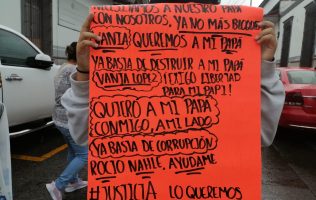 A NUESTRO PAPA
CON NOSOTROS, YA NO MÁS
VANIA QUEREMOS A MI PAPÁ
YA BASTA DE DESTRUIR A MI PAPÁ
VANIA LOPEZ ¡EXIGO LIBERTAD
PARA MI PAPI!
QUIERO A MI PAPÁ
CONMIGO, A MI LADO
YA BASTA DE CORRUPCIÓN
ROCIO NAHLE, AYUDAME
#JUSTICIA LO QUEREMOS